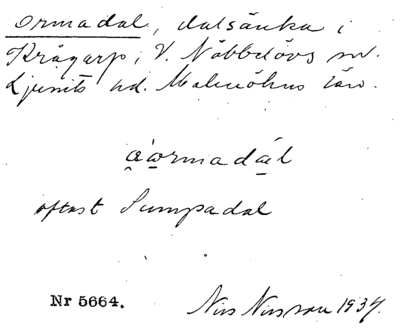 Ormadal, dalsänka i
Krågarp, V. Nöbbelövs sn.
Ljunits hd. Malmöhus län.
ac̀ormadál
oftast Sumpadal
Nr 5664.
Nils Nilsson 1934.